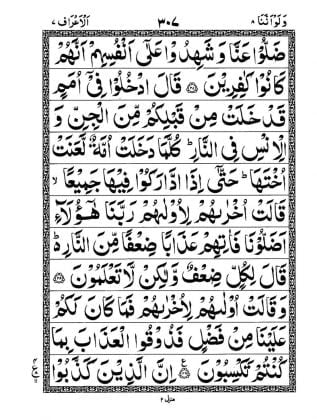 وَلَوْ اَنَّنَا ٨ ٣٠٧ اَلْاَعْرَاف ٧
ضَلُّوْا عَنَّا وَ شَهِدُوْا عَلٰٓى اَنْفُسِهِمْ اَنَّهُمْ
كَانُوْا كٰفِرِيْنَ ۝ قَالَ ادْخُلُوْا فِيْٓ اُمَمٍ
قَدْ خَلَتْ مِنْ قَبْلِكُمْ مِّنَ الْجِنِّ وَ
الْاِنْسِ فِي النَّارِ ؕ كُلَّمَا دَخَلَتْ اُمَّةٌ لَّعَنَتْ
اُخْتَهَا ؕ حَتّٰٓى اِذَا ادَّارَكُوْا فِيْهَا جَمِيْعًا ۙ
قَالَتْ اُخْرٰىهُمْ لِاُوْلٰىهُمْ رَبَّنَا هٰٓؤُلَآءِ
اَضَلُّوْنَا فَاٰتِهِمْ عَذَابًا ضِعْفًا مِّنَ النَّارِ ؕ۬
قَالَ لِكُلٍّ ضِعْفٌ وَّلٰكِنْ لَّا تَعْلَمُوْنَ ۝
وَ قَالَتْ اُوْلٰىهُمْ لِاُخْرٰىهُمْ فَمَا كَانَ لَكُمْ
عَلَيْنَا مِنْ فَضْلٍ فَذُوْقُوا الْعَذَابَ بِمَا
كُنْتُمْ تَكْسِبُوْنَ ۝ اِنَّ الَّذِيْنَ كَذَّبُوْا
منزل ٢